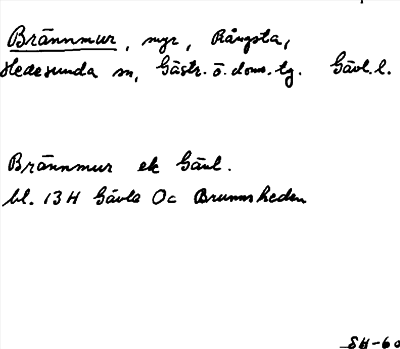 Brännmur, myr, Rångsta,
Hedesunda sn, Gästr. ö. doms. tg. Gävl. l.
Brännmur ek Gävl.
bl. 13 H Gävle Oc Brunnsheden
SH-60